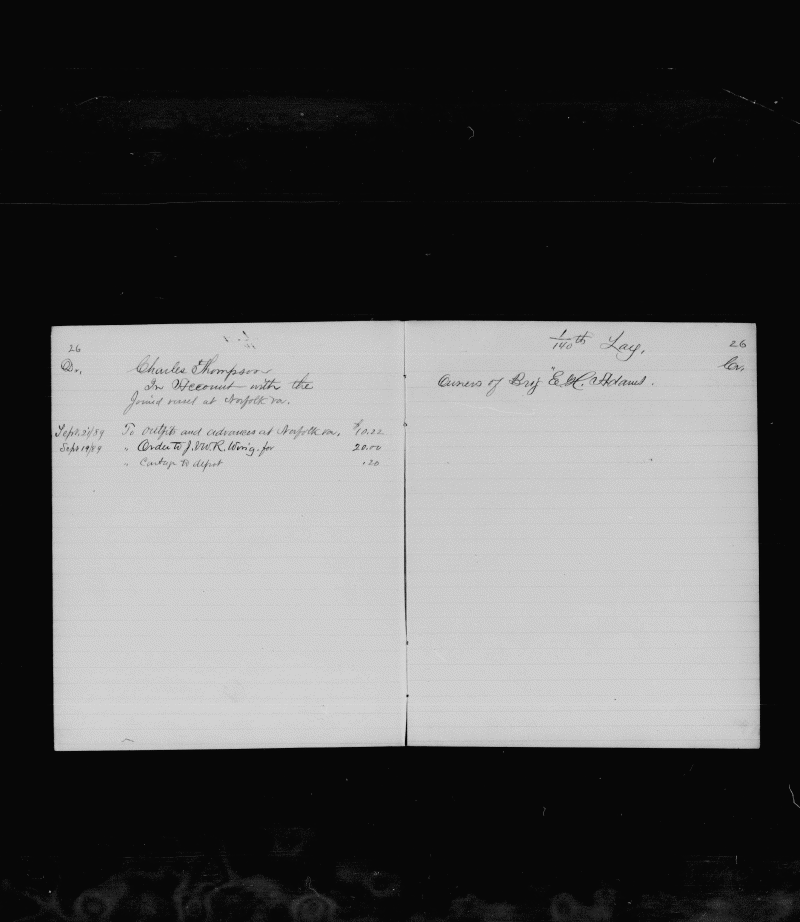 26
Dr.
Charles Thompson
In Account with the
Joined vessel at Norfolk Va.
Sept. /89 To outfits and advances at Norfolk Va. $10.22
Sept 19/89 " Order to J. & W. R. Wing. for 20.00
" Cartage to depot .20
1/140 th Lay.
26
Cr.
Owners of Brig "E. H. Adams.